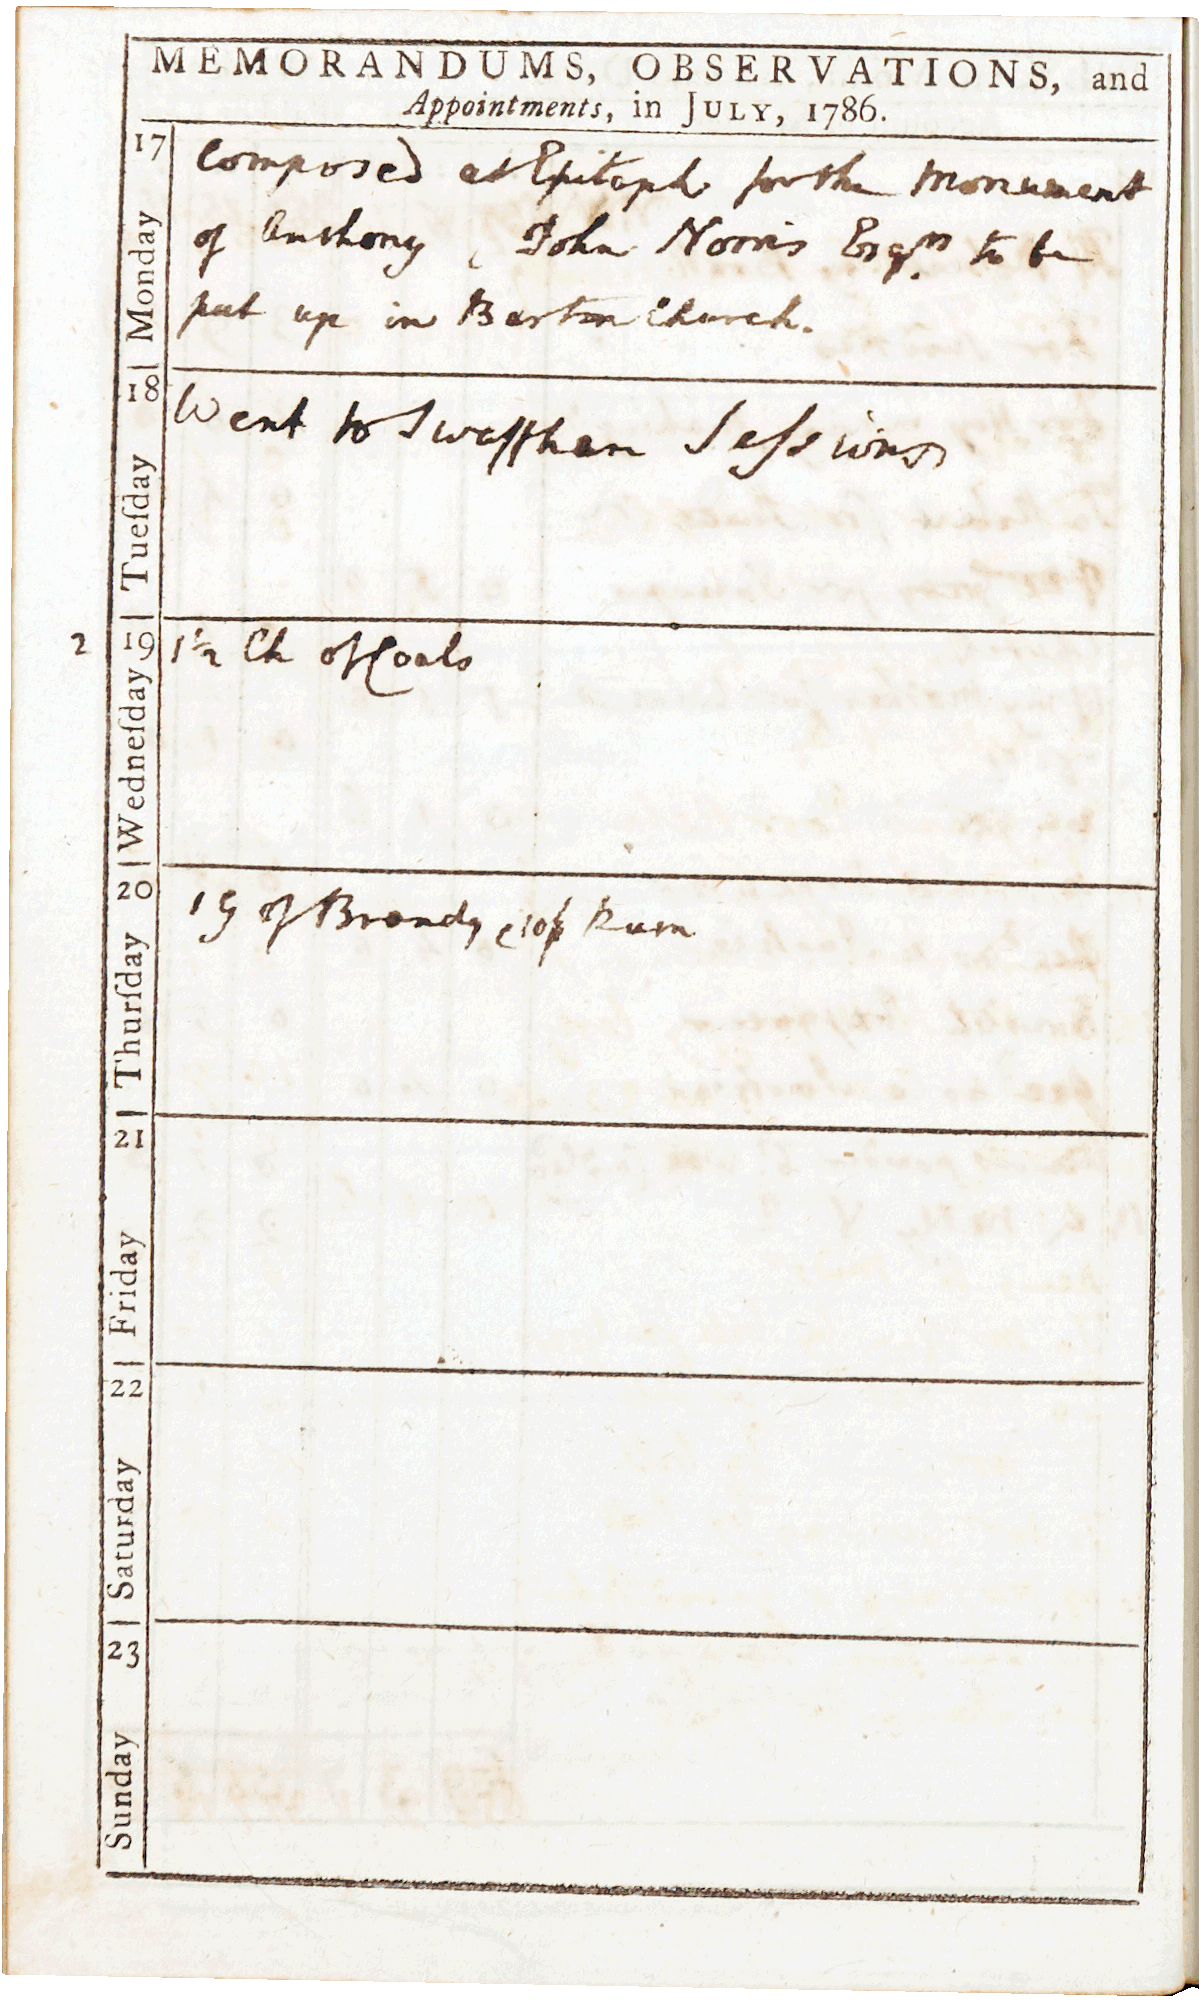 MEMORANDUMS, OBSERVATIONS, and
Appointments, in JULY, 1786.
17 Monday
Composed at Epitaph for the Monument
of Anthony & John Norris Esqrs. to be
put up in Barton Church.
18 Tueſday
Went to Swaffham Seſsions
2 19 Wedneſday
1½ Ch of Coals
20 Thurſday
1 G of Brandy & Rum
21 Friday
22 Saturday
23 Sunday